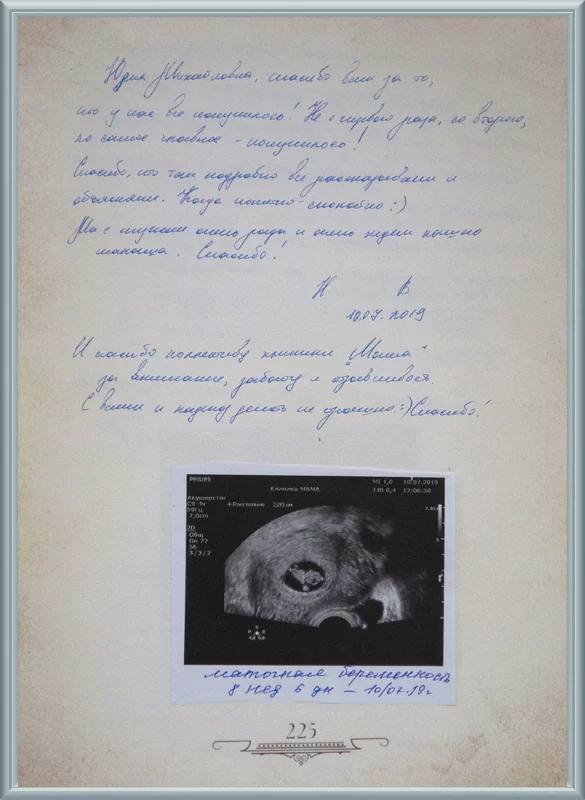 Юлия Михайловна, спасибо Вам за то,
что у нас все получилось! Не с первого раза, со второго,
но самое главное - получилось!
Спасибо, что так подробно все рассказывали и
объясняли. Когда понятно - спокойно :)
Мы с мужем очень рады и очень ждем нашего
малыша. Спасибо!
Н В
10.07.2019
И спасибо коллективу клиники "Мама"
за внимание, заботу и отзывчивость.
С вами и подвиг делать не страшно :) Спасибо!
PHILIPS
MI 1,0 10.07.2019
Клиника МАМА
TIB 0,4 12:06:50
Акушерство
C9-4v
+Расстояние 2,03 см
39Гц
7,0cm
2D
Общ
Дп 77
56
3/3/2
маточная беременность
8 нед 6 дн — 10/07.19г
225